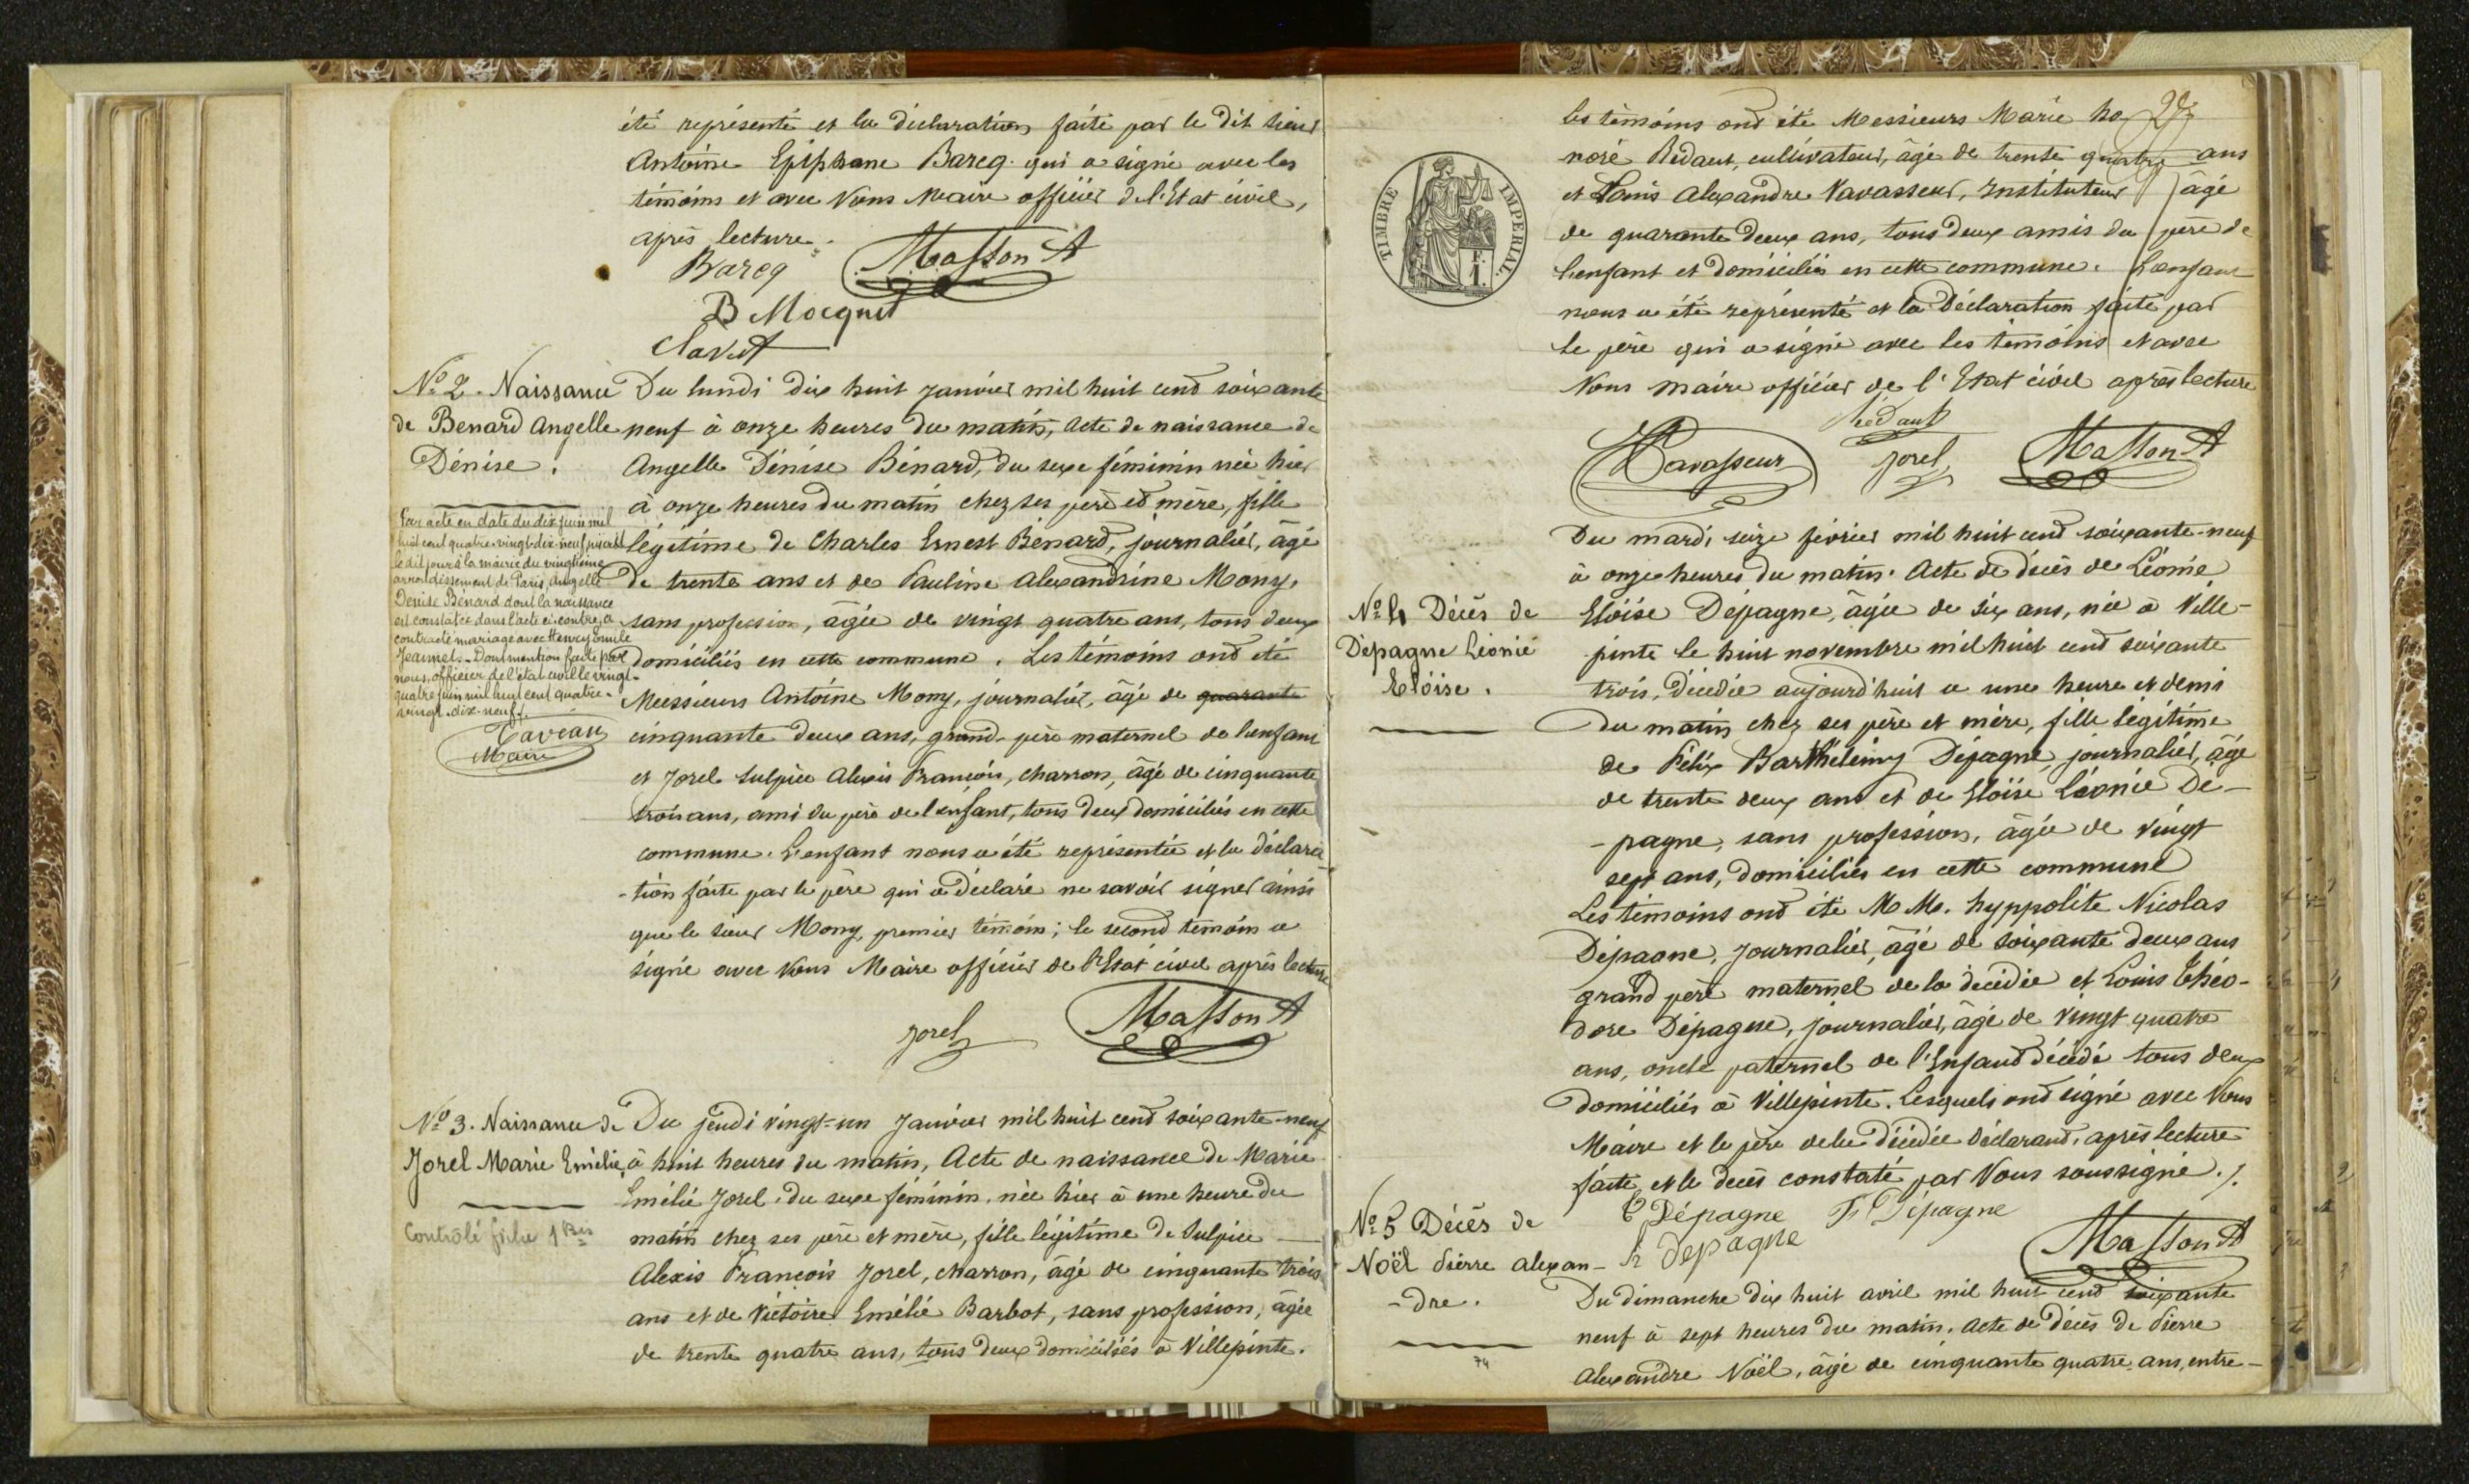 été représenté et la déclaration faite par le dit sieur
Antoine Epiphane Barcq qui a signé avec les
témoins et avec Nous Maire officier de l'Etat civil,
après lecture.
Barcq Masson A
B Mocquet
Clavet
N° 2. Naissance
de Benard Angelle
Dénise.
Par acte en date du dix juin mil
huit cent quatre-vingt-dix-neuf, passé
le dit jour à la mairie du vingtième
arrondissement de Paris, Angelle
Denise Bénard dont la naissance
est constatée dans l'acte ci-contre, a
contracté mariage avec Henry Emile
Jeannel. Dont mention faite par
nous, officier de l'état civil le vingt-
quatre juin mil huit cent quatre-
vingt-dix-neuf.
Taveau
Maire
Du lundi dix huit janvier mil huit cent soixante
neuf à onze heures du matin, Acte de naissance de
Angelle Dénise Bénard, du sexe féminin née hier
à onze heures du matin chez ses père et mère, fille
légitime de Charles Ernest Bénard, journalier, âgé
de trente ans et de Pauline Alexandrine Mony,
sans profession, âgée de vingt quatre ans, tous deux
domiciliés en cette commune. Les témoins ont été
Messieurs Antoine Mony, journalier, âgé de quarante
cinquante deux ans, grand-père maternel de l'enfant
et Jorel Sulpice Alexis François, charron, âgé de cinquante
trois ans, ami du père de l'enfant, tous deux domiciliés en cette
commune. L'enfant nous a été représentée et la déclara
-tion faite par le père qui a déclaré ne savoir signer ainsi
que le sieur Mony, premier témoin; le second témoin a
signé avec Nous Maire officier de l'Etat civil après lecture
Jorel Masson A
N° 3. Naissance de
Jorel Marie Emélie,
Contrôlé fiche 1 Bis
Du jeudi vingt-un Janvier mil huit cent soixante-neuf
à huit heures du matin, Acte de naissance de Marie
Emélie Jorel, du sexe féminin, née hier à une heure du
matin chez ses père et mère, fille légitime de Sulpice
Alexis François Jorel, charron, âgé de cinquante trois
ans et de Victoire Emélie Barbot, sans profession, âgée
de trente quatre ans, tous deux domiciliés à Villepinte.
TIMBRE IMPERIAL
F. 1.
les témoins ont été Messieurs Marie ho-
noré Rédaut, cultivateur, âgé de trente quatre ans
et Louis Alexandre Vavasseur, Instituteur âgé
de quarante deux ans, tous deux amis du père de
l'enfant et domiciliés en cette commune. L'enfant
nous a été représenté et la Déclaration faite par
le père qui a signé avec les témoins et avec
Nous maire officier de l'Etat civil après lecture
Rédaut
Vavasseur Jorel Masson A
N° 4 Décès de
Dépagne Léonie
Eloïse.
Du mardi seize février mil huit cent soixante-neuf
à onze heures du matin. Acte de décès de Léonie
Eloïse Dépagne, âgée de six ans, née à Ville-
pinte le huit novembre mil huit cent soixante
trois, décédée aujourd'huit a une heure et demi
du matin chez ses père et mère, fille légitime
de Félix Barthélemy Dépagne, journalier, âgé
de trente deux ans et de Eloïse Léonie Dé-
-pagne, sans profession, âgée de vingt
sept ans, domiciliés en cette commune
Les témoins ont été M M. hyppolite Nicolas
Dépagne, journalier, âgé de soixante deux ans
grand père maternel de la décédée et Louis Théo-
dore Dépagne, journalier, âgé de vingt quatre
ans, oncle paternel de l'Enfant décédé tous deux
domiciliés à Villepinte. Lesquels ont signé avec Nous
Maire et le père de la décédée déclarant, après lecture
faite, et le décès constaté par Nous soussigné. /.
Dépagne F. Dépagne
h Depagne Masson A
N° 5 Décès de
Noël Pierre Alexan-
-dre.
74
Du dimanche dix huit avril mil huit cent soixante
neuf à sept heures du matin. Acte de décès de Pierre
Alexandre Noël, âgé de cinquante quatre ans, entre-